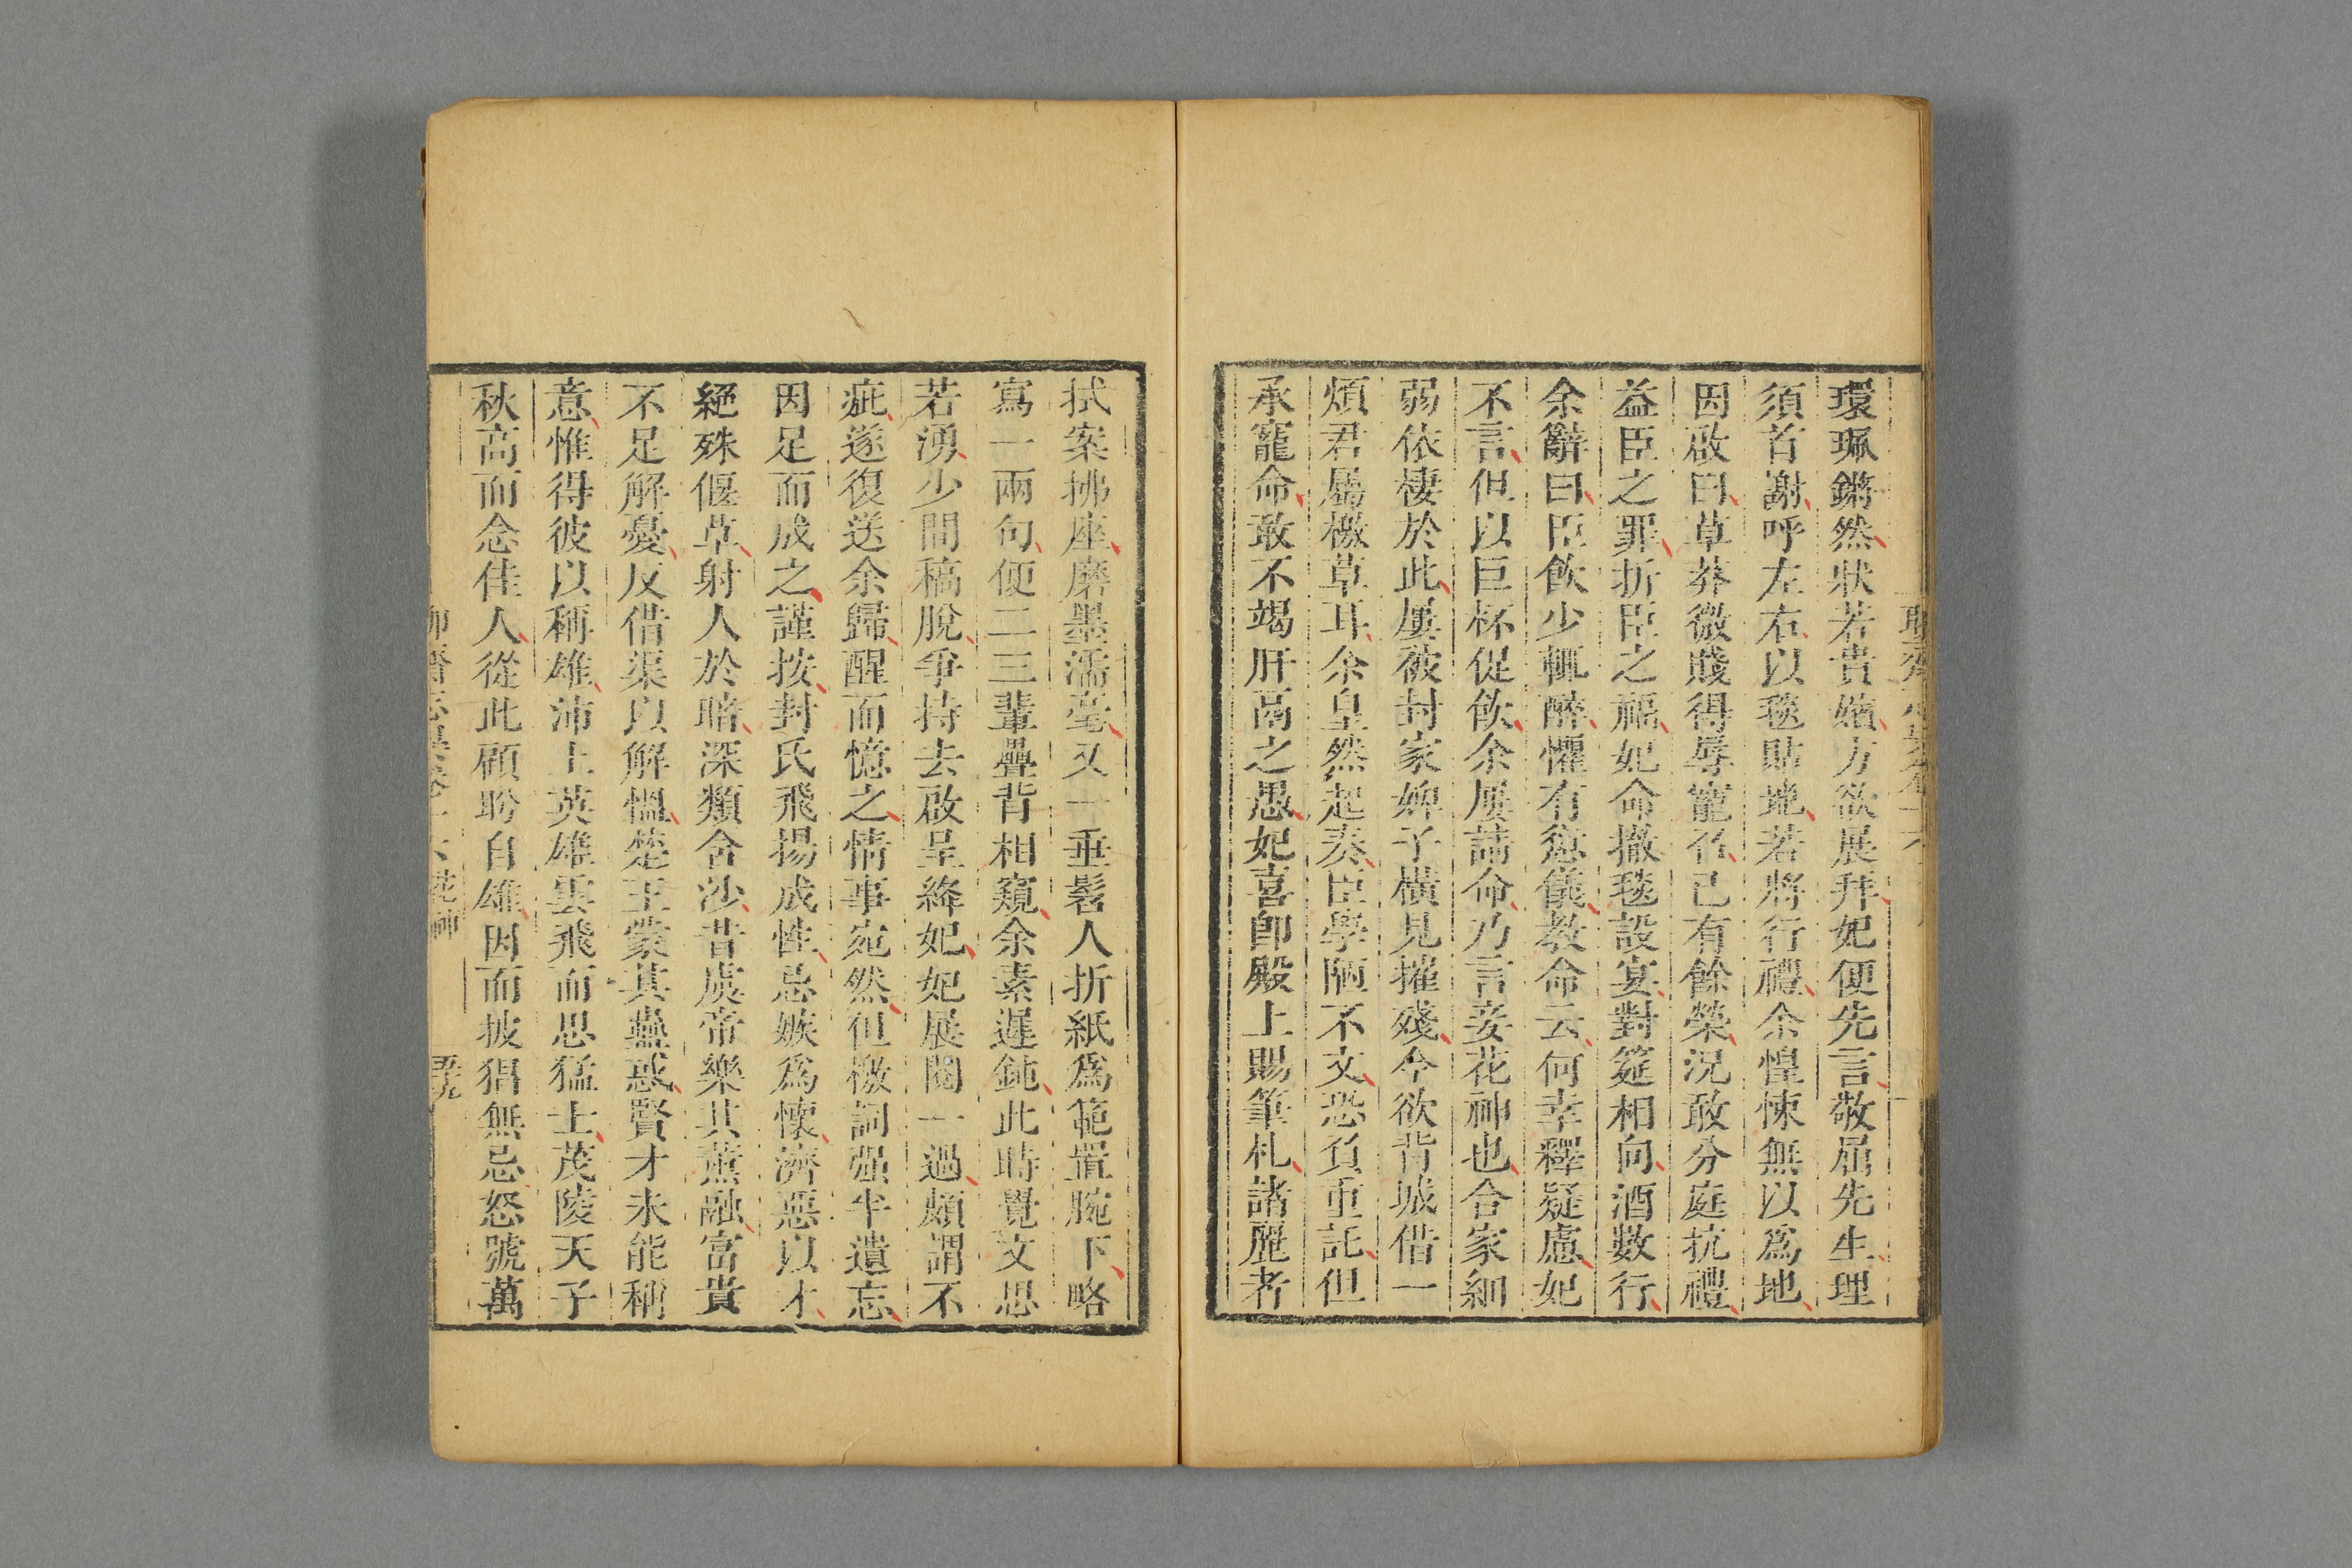 環珮鏘然狀若貴嬪方欲展拜妃便先言敬屈先生理
須首謝呼左右以毯貼地若將行禮余惶悚無以爲地
因啟曰草莽微賤得辱寵召已有餘榮況敢分庭抗禮
益臣之罪折臣之福妃命撤毯設宴對筵相向酒數行
余辭曰臣飲少輒醉懼有愆儀教命云何幸釋疑慮妃
不言但以巨杯促飲余屢請命乃言妾花神也合家細
弱依棲於此屢被封家婢子橫見摧殘今欲背城借一
煩君屬檄草耳余皇然起奏臣學陋不文恐負重託但
承寵命敢不竭肝鬲之愚妃喜卽殿上賜筆札諸麗者
拭案拂座磨墨濡毫又一垂髫人折紙爲範置腕下略
寫一兩句便二三輩疊背相窺余素遲鈍此時覺文思
若湧少間稿脫爭持去啟呈絳妃妃展閱一過頗謂不
疵遂復送余歸醒而憶之情事宛然但檄詞强半遺忘
因足而成之謹按封氏飛揚成性忌嫉爲懷濟惡以才
絕殊偃草射人於暗深類含沙昔虞帝樂其薰融富貴
不足解憂反借渠以解慍楚王蒙其蠱惑賢才未能稱
意惟得彼以稱雄沛上英雄雲飛而思猛士茂陵天子
秋高而念佳人從此顧盼自雄因而披猖無忌怒號萬
花神